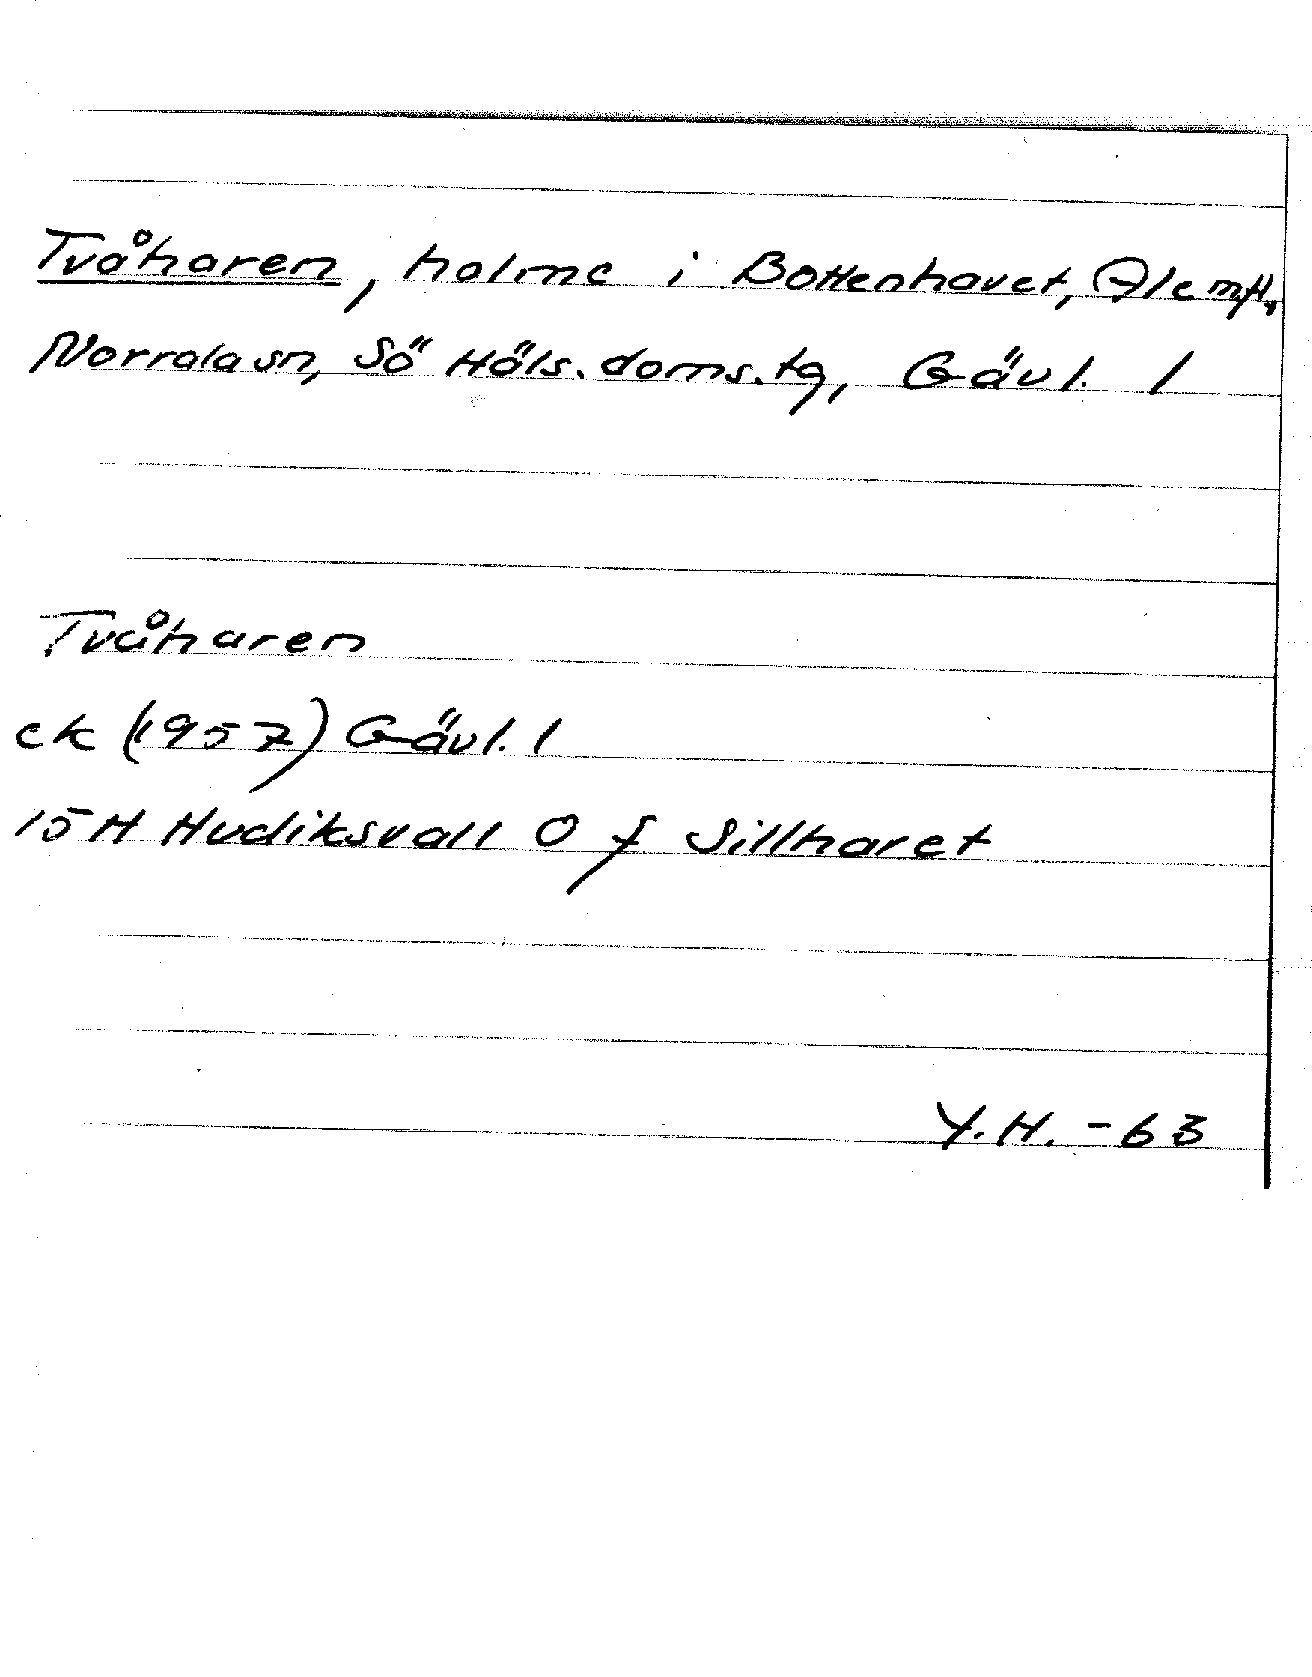 Tvåharen, holme i Bottenhavet, Ale mfl,
Norrala sn, Sö Häls. doms. tg, Gävl. l
Tvåharen
ek (1957) Gävl. l
15H Hudiksvall O f Sillharet
Y.H. -63